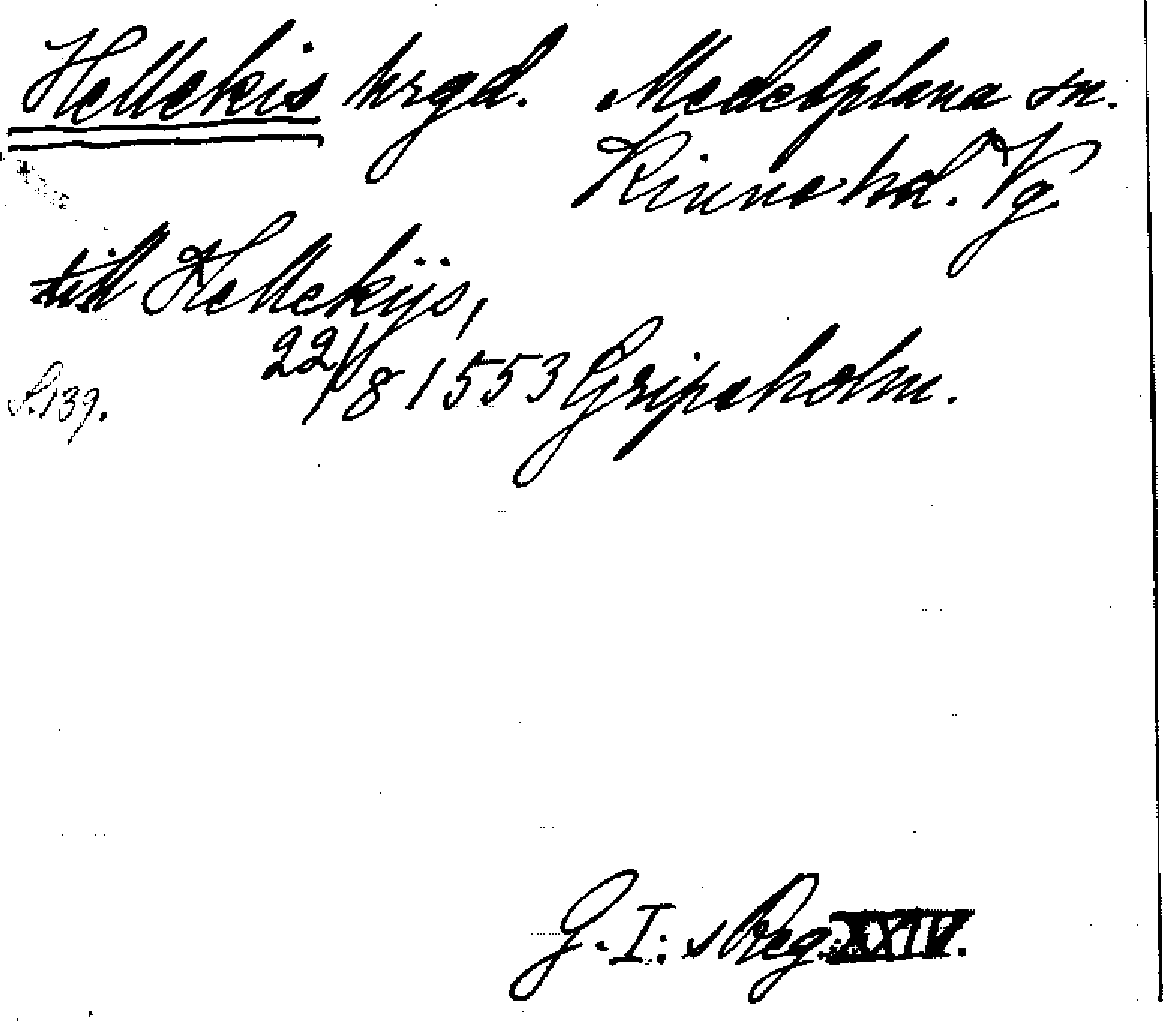 Hellekis hrgd. Medelplana sn.
Kinne hd. Vg.
till Hellekijs,
22/8 1553 Gripsholm.
S. 139.
G. I: s Reg. XXIV.